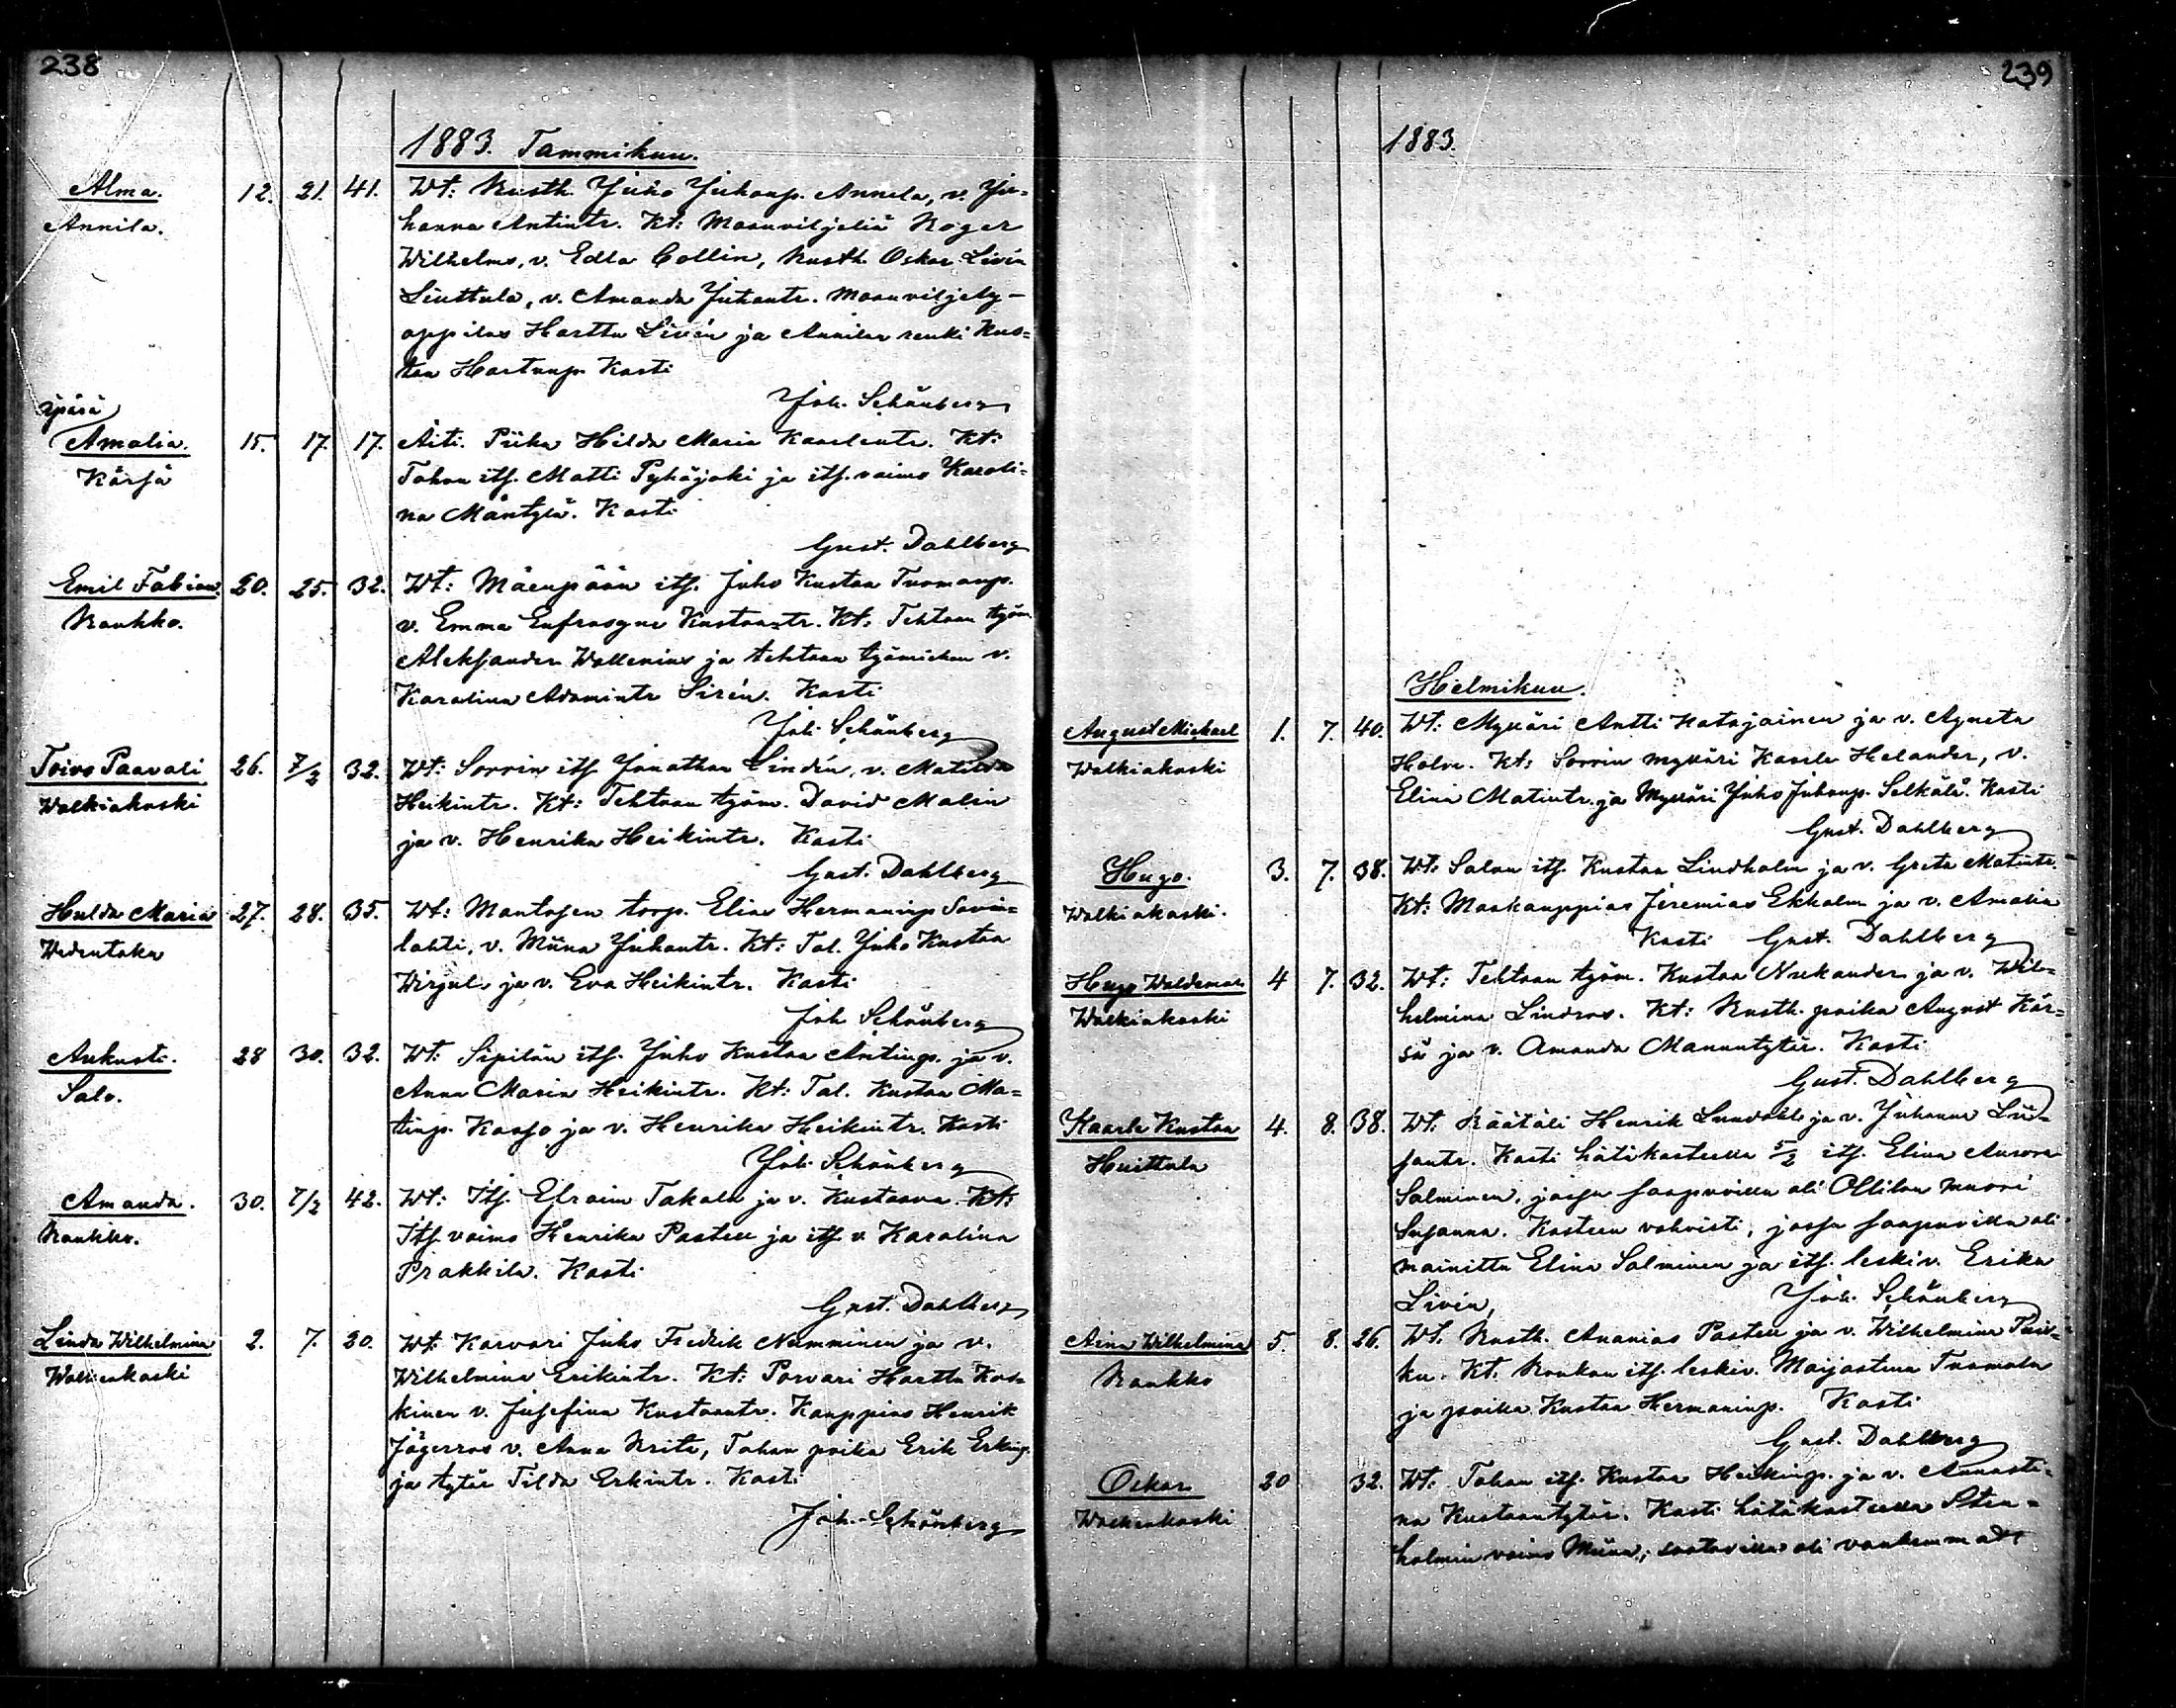 238
1883. Tammikuu.
Alma. 12. 21. 41. Wt: Rusth. Juho Juhonp. Annila, v. Ju-
Annila. hanna Antintr. Kt: Maanviljeliä Roger
Wilhelms, v. Edla Collin, Rusth. Oskar Livin
Liuttula, v. Amanda Juhontr. Maanviljely-
oppilas Harttu Livén ja Annilan renki Kus=
taa Hartunp. Kasti
Joh. Schönberg
äpärä
Amalia. 15. 17. 17. Äiti. Piika Hilda Maria Kaarlentr. Kt:
Kärsä Tohon itf. Matti Pyhäjoki ja itf. vaimo Karoli=
na Mäntylä. Kasti
Gust. Dahlberg
Emil Fabian. 20. 25. 32. Wt: Mäenpään itf. Juho Kustaa Tuomanp.
Raukko. v. Emma Eufrosyne Kustaantr. Kt: Tehtaan työm.
Aleksander Wallenius ja tehtaan työmiehen v.
Karolina Adamintr Sirén. Kasti
Joh. Schönberg
Toivo Paavali 26. 7/2 32. Wt: Sorrin itf Jonathan Lindén, v. Matilda
Walkiakoski Heikintr. Kt: Tehtaan työm. David Malin
ja v. Henrika Heikintr. Kasti
Gust. Dahlberg
Hulda Maria 27. 28. 35. Wt: Mantosen torp. Elias Hermaninp Savi=
Wedentaka lahti, v. Miina Juhontr. Kt: Tal. Juho Kustaa
ja v. Eva Heikintr. Kasti
Joh Schönberg
Aukusti. 28 30. 32. Wt: Sipilän itf. Juho Kustaa Antinp. ja v.
Salo. Anna Maria Heikintr. Kt: Tal. Kustaa Ma=
tinp. ja v. Henrika Heikintr. Kasti
Joh. Schönberg
Amanda. 30. 7/2 42. Wt: Itf. Efraim Takala ja v. Kustaava. Kt:
Raukko. Itf. vaimo Henrika Pastell ja itf. v. Karolina
Prakkila. Kasti
Gust. Dahlberg
Linda Wilhelmina 2. 7. 20. Wt: Karvari Juho Fredrik Numminen ja v.
Walkiakoski Wilhelmina Erikintr. Kt: Porvari Harttu Kos=
kinen v. Josefina Kustaantr. Kauppias Henrik
Jägerros v. Anna Krita, Tohon poika Erik Erkinp.
ja tytär Tilda Erkintr. Kasti
Joh. Schönberg
239
1883.
Helmikuu.
August Michael 1. 7. 40. Wt: Mylläri Antti Katajainen ja v. Agneta
Walkiakoski Holm. Kt: Sorrin mylläri Kaarle Helander, v.
Elina Matintr. ja Mylläri Juho Juhonp. Selkälä. Kasti
Gust. Dahlberg
Hugo. 3. 7. 38. Wt: Salon itf. Kustaa Lindholm ja v. Greta Matintr.
Walkiakoski. Kt: Maakauppias Jeremias Ekholm ja v. Amalia
Kasti Gust. Dahlberg
Hugo Waldemar 4 7. 32. Wt: Tehtaan työm. Kustaa Nukander ja v. Wil=
Walkiakoski helmina Lindros. Kt: Rusth. poika August Kär=
sä ja v. Amanda Manuntytär. Kasti
Gust. Dahlberg
Kaarle Kustaa 4. 8. 38. Wt. Räätäli Henrik Lundahl ja v. Juhanna Lii-
Huittula santr. Kasti hätäkasteella 5/2 itf. Elina Aurora
Salminen, jossa saapuvilla oli Ollilan muori
Susanna. Kasteen vahvisti, jossa saapuvilla oli
mainittu Elina Salminen ja itf. leskiv. Erika
Livin, Joh. Schönberg
Aina Wilhelmina 5. 8. 26. Wt. Rusth. Ananias Pastell ja v. Wilhelmina
Raukko Kt. Roukon itf. leskiv. Marjastina Tuomola
ja poika Kustaa Hermaninp. Kasti
Gust. Dahlberg
Oskar 20 32. Wt. Tohon itf. Kustaa Heikinp. ja v. Annasti=
Walkiakoski na Kustaantytär. Kasti hätäkasteella Sten=
holmin vaimo Miina; saatavilla oli vanhemmat